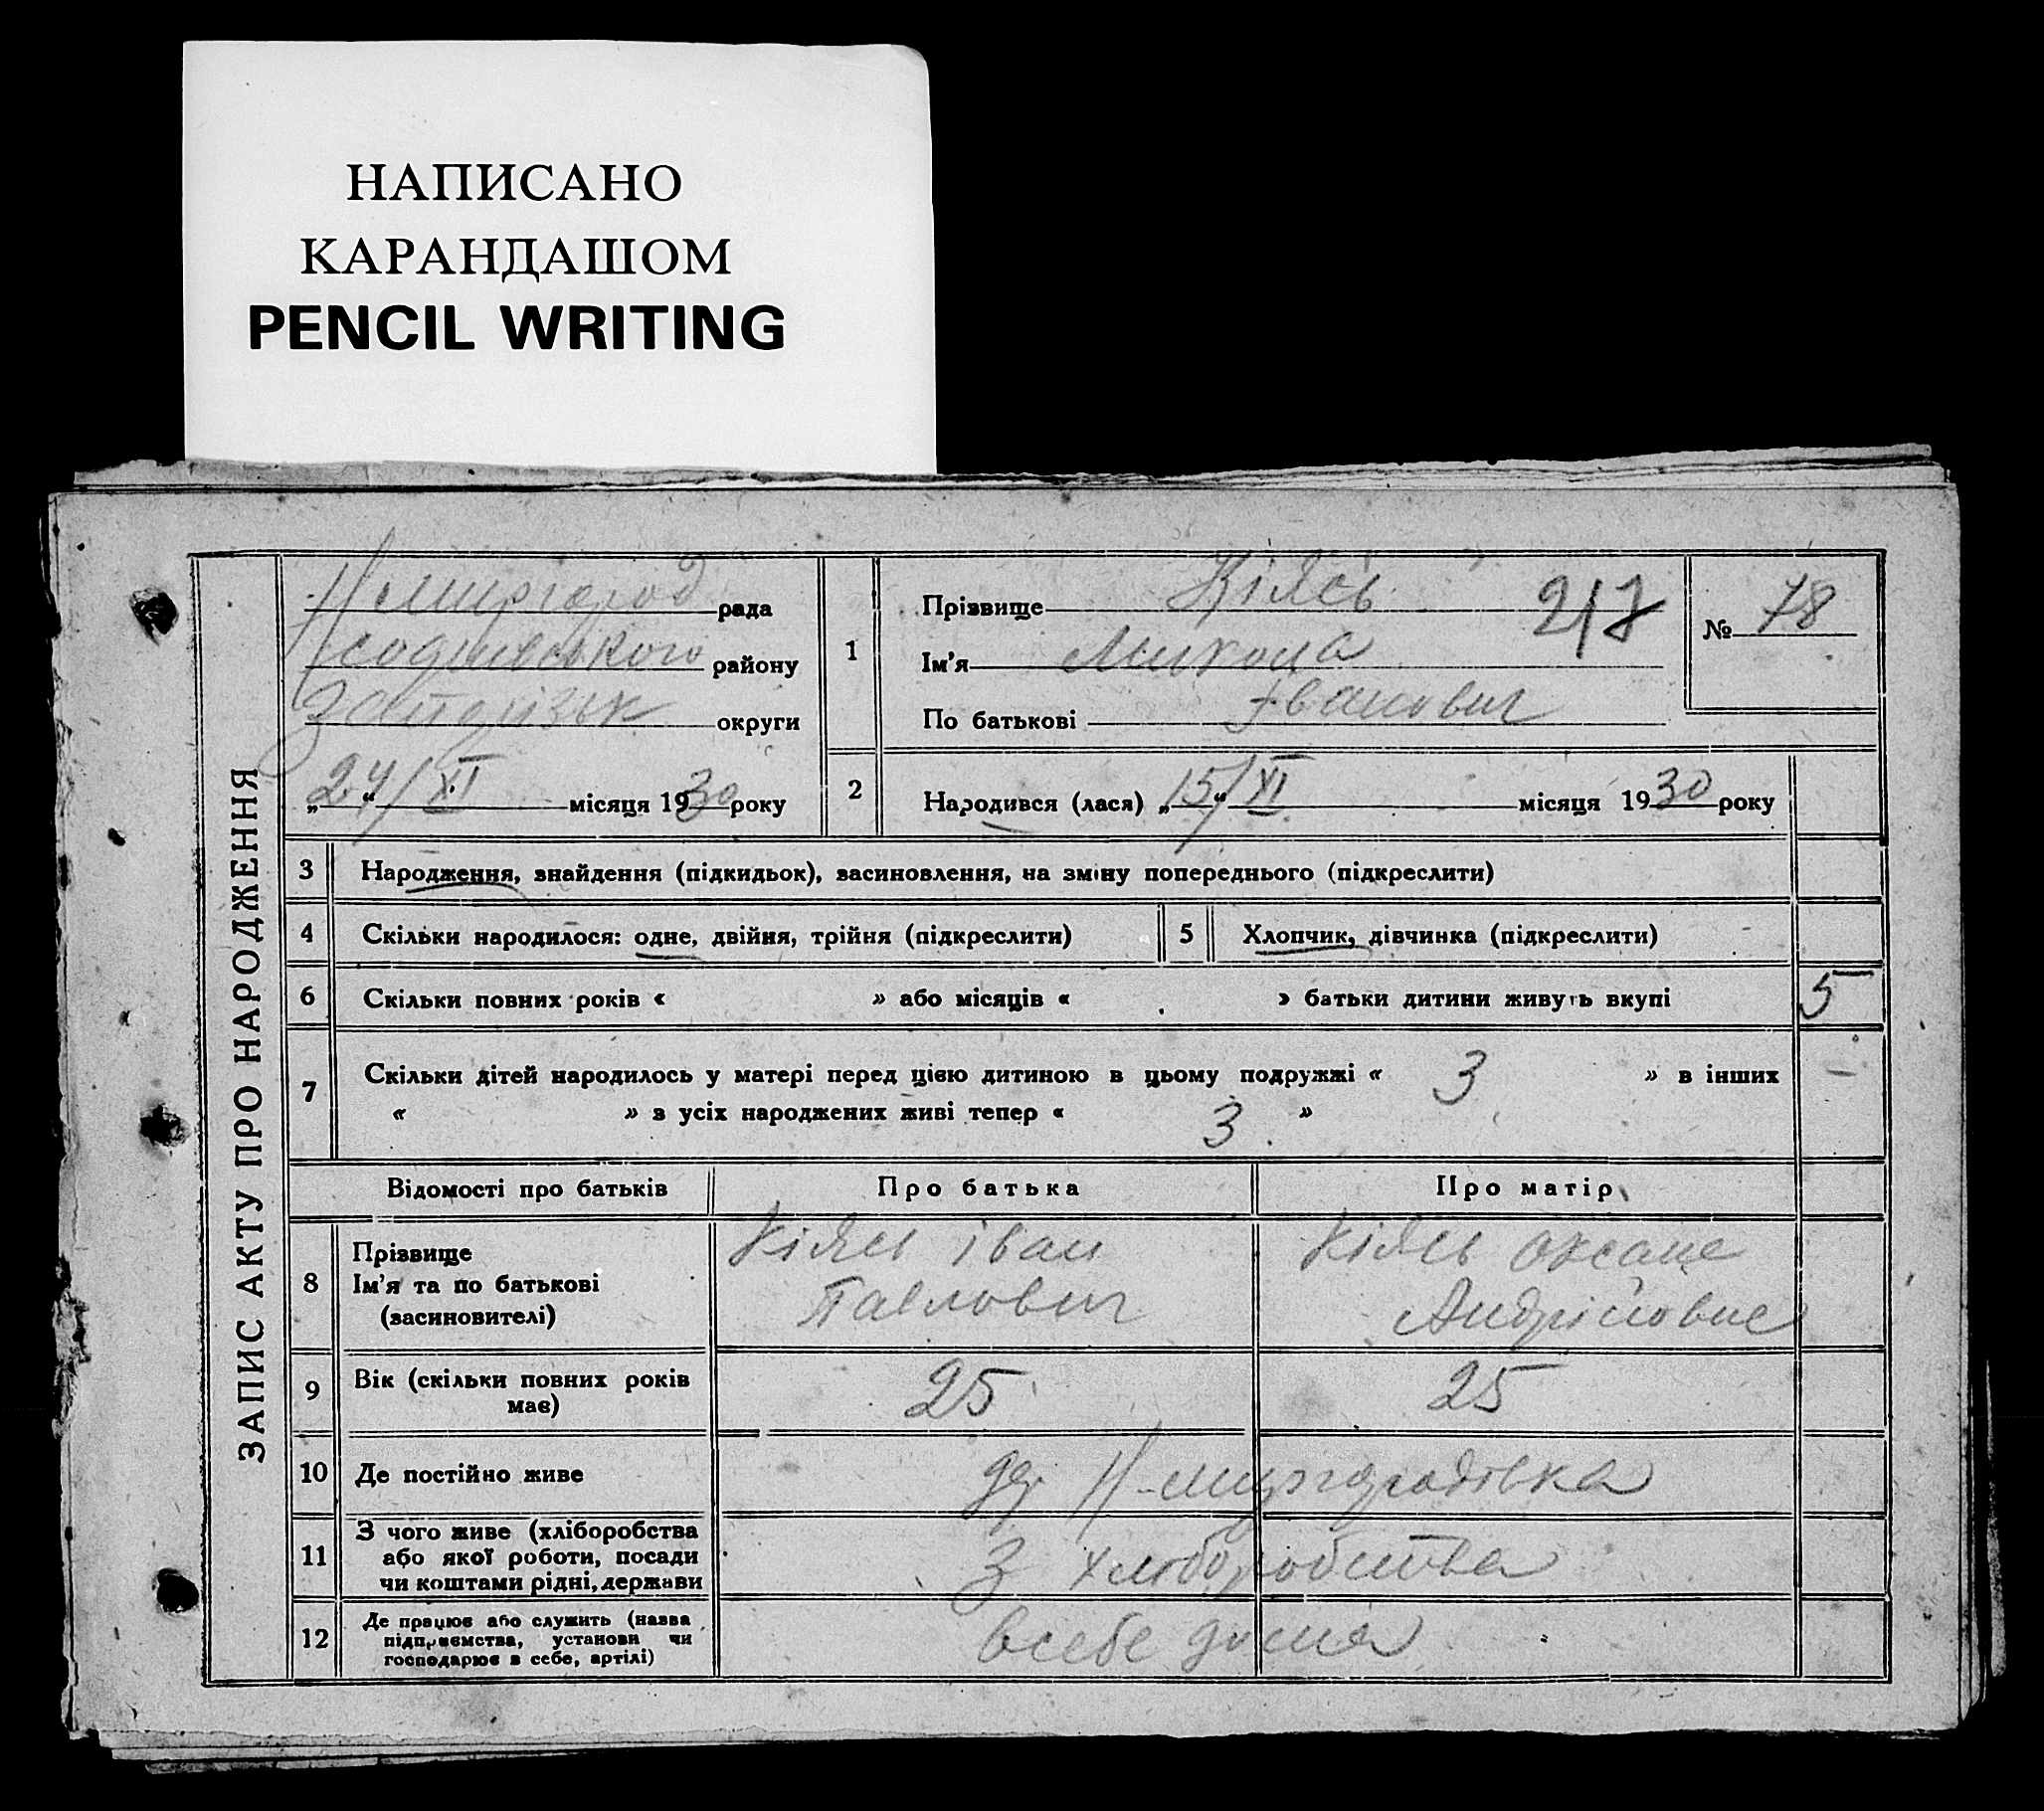 НАПИСАНО
КАРАНДАШОМ
PENCIL WRITING
ЗАПИС АКТУ ПРО НАРОДЖЕННЯ
Н миргород рада
району
Запорізьк округи
„24“/XI місяця 1930 року
1
Прізвище Кілясь 217
Ім'я Микола
По батькові Іванович
№ 78
2
Народився (лася) „15“/XI місяця 1930 року
3 Народження, знайдення (підкидьок), засиновлення, на зміну попереднього (підкреслити)
4 Скільки народилося: одне, двійня, трійня (підкреслити)
5 Хлопчик, дівчинка (підкреслити)
6 Скільки повних років « » або місяців « » батьки дитини живуть вкупі 5
7 Скільки дітей народилось у матері перед цією дитиною в цьому подружжі « 3 » в інших —
« » з усіх народжених живі тепер « 3 »
Відомості про батьків Про батька Про матір
8 Прізвище
Ім'я та по батькові
(засиновителі)
Кілясь Іван
Павлович
Кілясь Оксана
Андріївна
9 Вік (скільки повних років
має)
25 25
10 Де постійно живе
Н-миргородівка
11 З чого живе (хліборобства
або якої роботи, посади
чи коштами рідні, держави
З хліборобства
12 Де працює або служить (назва
підприємства, установи чи
господарює в себе, артілі)
всебе дома